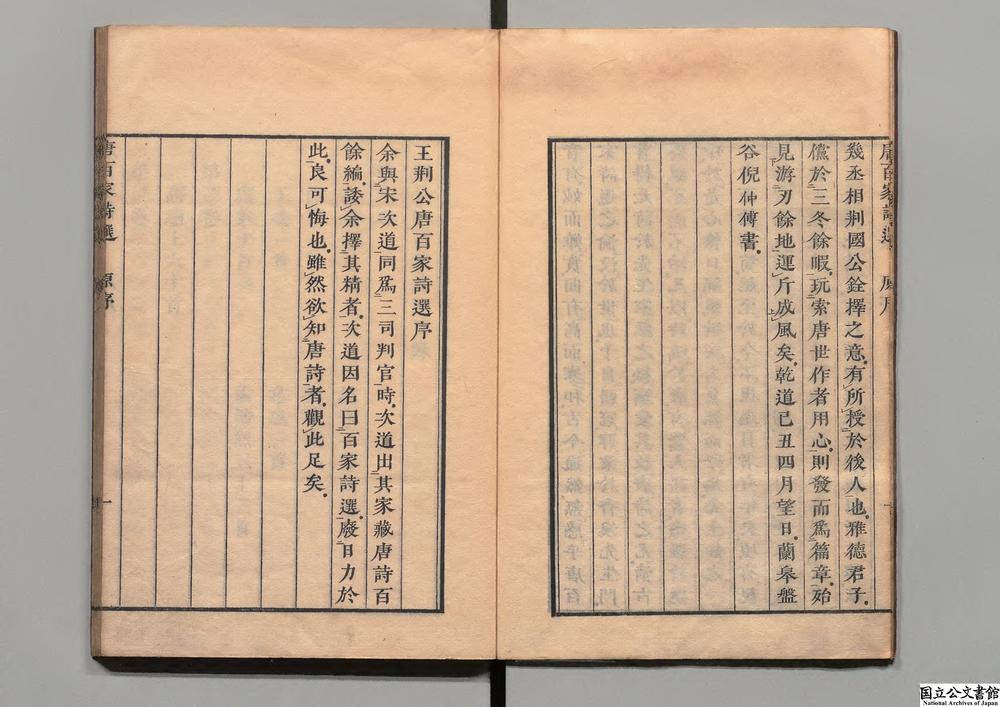 幾丞相荆國公銓擇之意有所授於後人也雅德君子
儻於三冬餘暇玩索唐世作者用心則發而爲篇章殆
見游刃餘地運斤成風矣乾道己丑四月望日蘭皋盤
谷倪仲傅書
王荆公唐百家詩選序
余與宋次道同爲三司判官時次道出其家藏唐詩百
餘編諉余擇其精者次道因名曰百家詩選廢日力於
此良可悔也雖然欲知唐詩者觀此足矣
唐百家詩選 原序 一
国立公文書館
National Archives of Japan